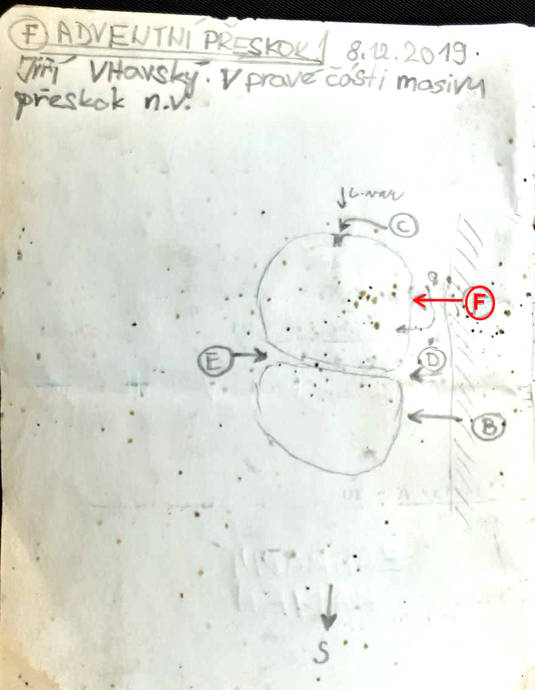 F ADVENTNÍ PŘESKOK 1 8.12.2019.
Jiří Vltavský. V pravé části masivu
přeskok n.v.
C
F
E
D
B
S